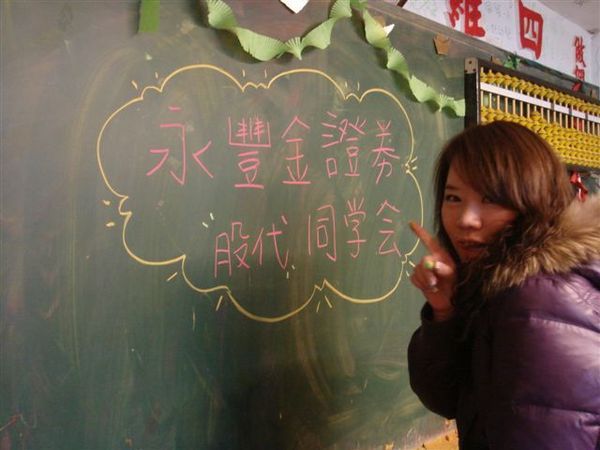 永豐金證券
股代同学会
四